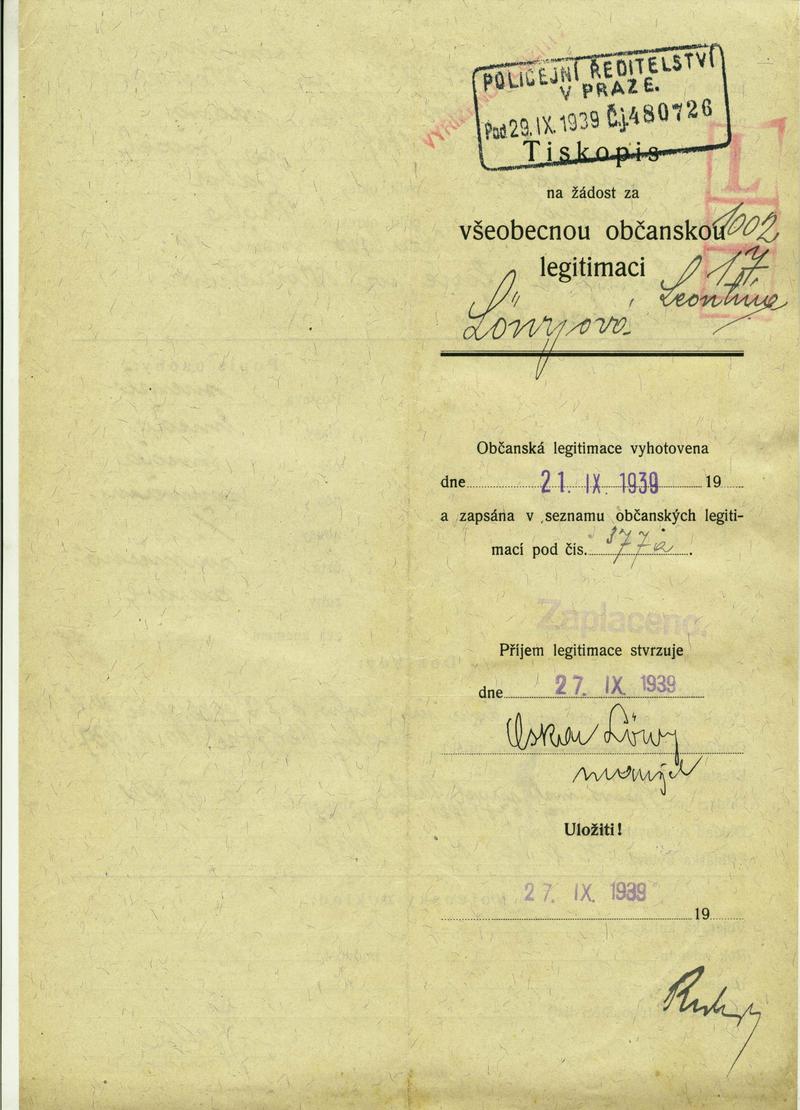 POLICEJNÍ ŘEDITELSTVÍ
V PRAZE.
Pod 29. IX. 1939 Čj. 480726
Tiskopis
L
na žádost za
všeobecnou občanskou 1002
legitimaci 17
Löwyová Leontine
Občanská legitimace vyhotovena
dne 21. IX. 1939 19
a zapsána v seznamu občanských legiti-
mací pod čís. 377a.
Zaplaceno.
Příjem legitimace stvrzuje
dne 27. IX. 1939
Oskar Löwy
manžel
Uložiti!
27. IX. 1939
19